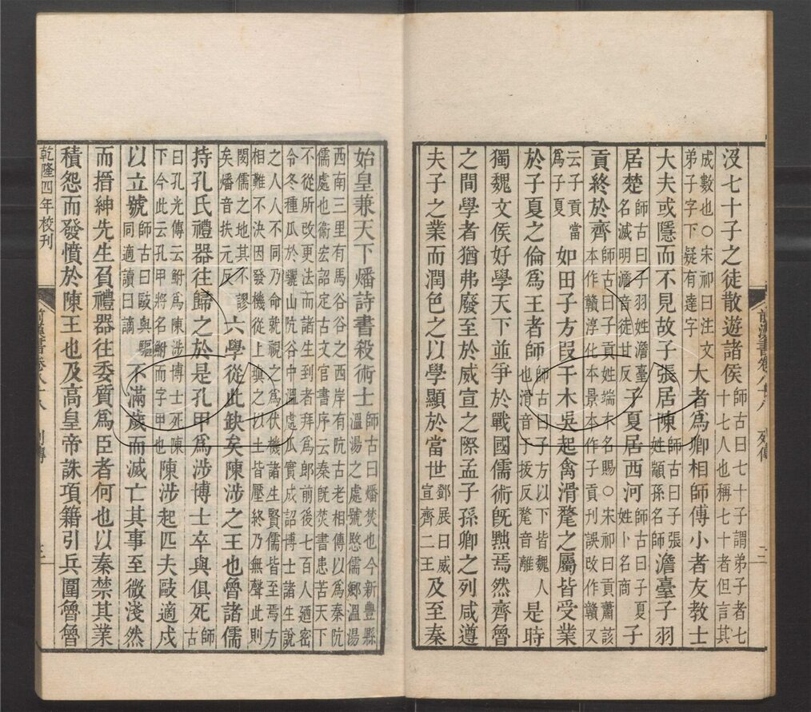 沒七十子之徒散遊諸侯師古曰七十子謂弟子者七十七人也稱七十者但言其
成數也○宋祁曰注文弟子字下疑有達字大者為卿相師傅小者友教士
大夫或隱而不見故子張居陳師古曰子張姓顓孫名師澹臺子羽
居楚師古曰子羽姓澹臺名滅明澹音徒甘反子夏居西河師古曰子夏姓卜名商子
貢終於齊師古曰子貢姓端木名賜○宋祁曰貢蕭該本作贛淳化本景本作子貢刊誤改作贛又
云子貢當為子夏如田子方段干木吳起禽滑氂之屬皆受業
於子夏之倫為王者師師古曰子方以下皆魏人也滑音于拔反氂音離是時
獨魏文侯好學天下並爭於戰國儒術既黜焉然齊魯
之間學者猶弗廢至於威宣之際孟子孫卿之列咸遵
夫子之業而潤色之以學顯於當世鄧展曰威宣齊二王及至秦
始皇兼天下燔詩書殺術士師古曰燔焚也今新豐縣溫湯之處號愍儒鄉溫湯
西南三里有馬谷谷之西岸有阬古老相傳以為秦阬儒處也衛宏詔定古文官書序云秦既焚書患苦天下
不從所改更法而諸生到者拜為郎前後七百人廼密令冬種瓜於驪山阬谷中溫處瓜實成詔博士諸生說
之人人不同乃命就視之為伏機諸生賢儒皆至焉方相難不決因發機從上填之以土皆壓終乃無聲此則
閔儒之地其不謬矣燔音扶元反六學從此缺矣陳涉之王也魯諸儒
持孔氏禮器往歸之於是孔甲為涉博士卒與俱死師古
曰孔光傳云鮒為陳涉博士死陳下今此云孔甲將名鮒而字甲也陳涉起匹夫敺適戍
以立號師古曰敺與驅同適讀曰讁不滿歲而滅亡其事至微淺然
而搢紳先生負禮器往委質為臣者何也以秦禁其業
積怨而發憤於陳王也及高皇帝誅項籍引兵圍魯魯
乾隆四年校刊